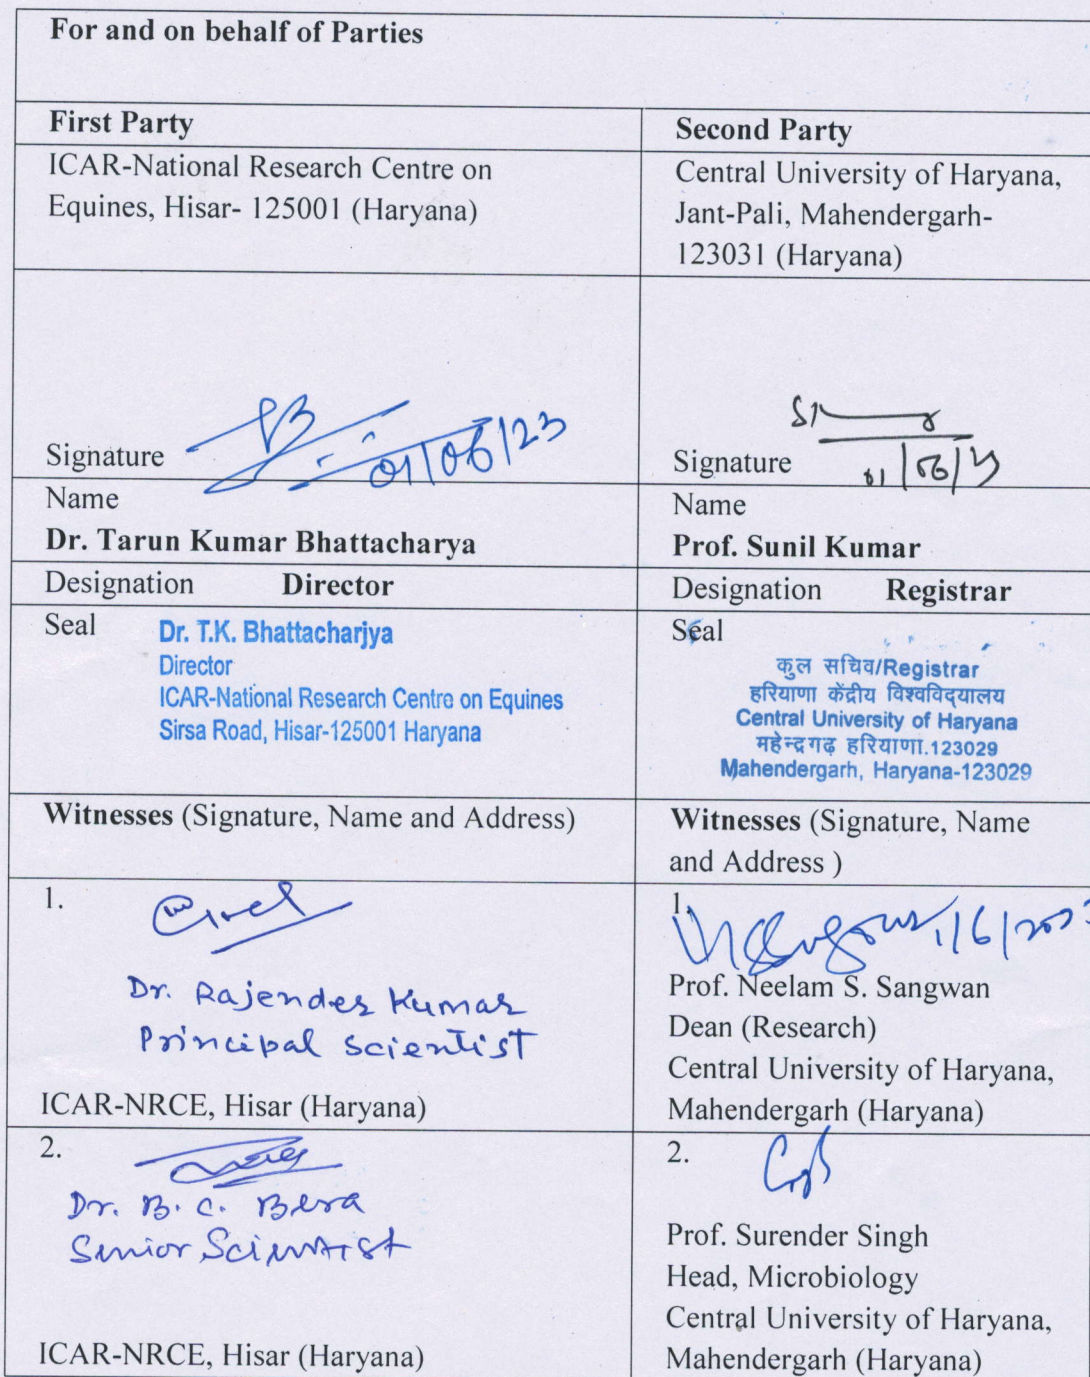 For and on behalf of Parties
First Party
Second Party
ICAR-National Research Centre on
Equines, Hisar- 125001 (Haryana)
Central University of Haryana,
Jant-Pali, Mahendergarh-
123031 (Haryana)
Signature
01/06/23
Signature
01/06/23
Name
Dr. Tarun Kumar Bhattacharya
Name
Prof. Sunil Kumar
Designation Director
Designation Registrar
Seal
Dr. T.K. Bhattacharjya
Director
ICAR-National Research Centre on Equines
Sirsa Road, Hisar-125001 Haryana
Seal
कुल सचिव/Registrar
हरियाणा केंद्रीय विश्वविद्यालय
Central University of Haryana
महेन्द्रगढ़ हरियाणा.123029
Mahendergarh, Haryana-123029
Witnesses (Signature, Name and Address)
Witnesses (Signature, Name
and Address )
1.
Dr. Rajender Kumar
Principal Scientist
ICAR-NRCE, Hisar (Haryana)
1.
1/6/2023
Prof. Neelam S. Sangwan
Dean (Research)
Central University of Haryana,
Mahendergarh (Haryana)
2.
Dr. B. C. Bera
Senior Scientist
ICAR-NRCE, Hisar (Haryana)
2.
Prof. Surender Singh
Head, Microbiology
Central University of Haryana,
Mahendergarh (Haryana)